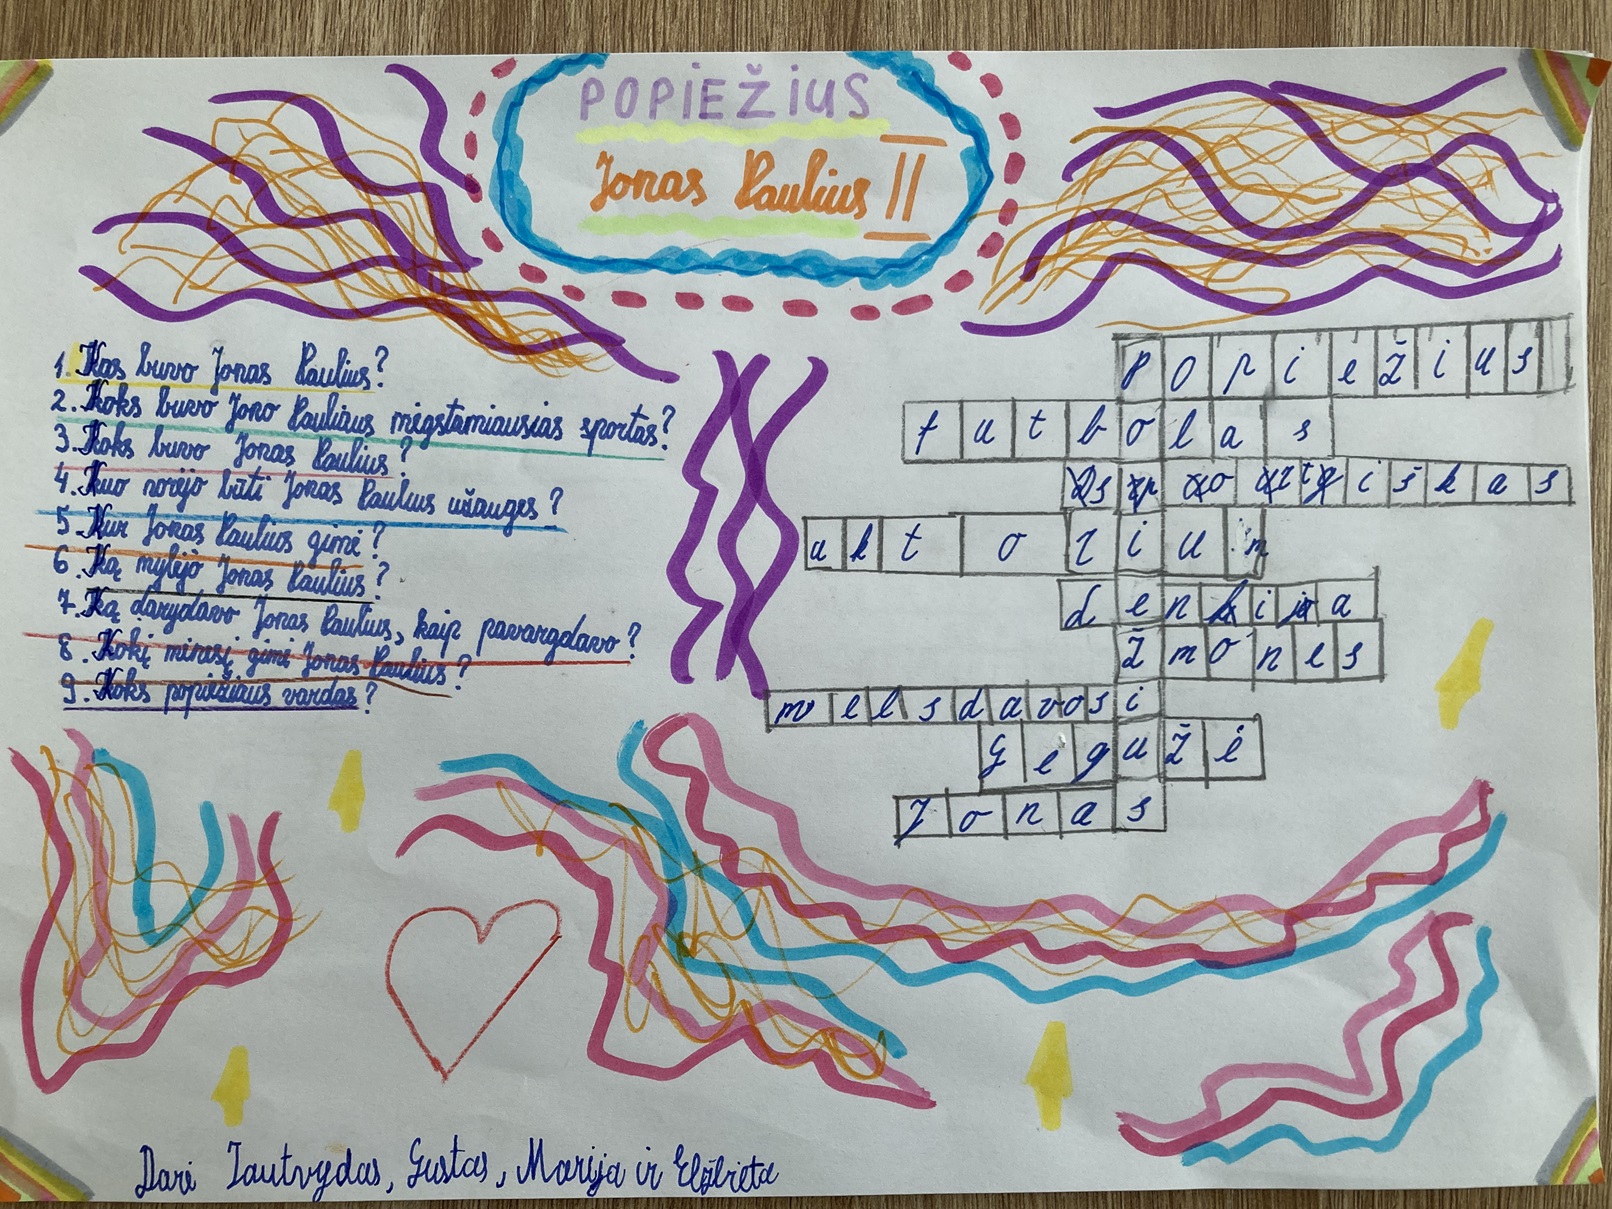 POPIEŽIUS
Jonas Paulius II
1. Kas buvo Jonas Paulius?
2. Koks buvo Jono Pauliaus mėgstamiausias sportas?
3. Koks buvo Jonas Paulius?
4. Kuo norėjo būti Jonas Paulius užauges?
5. Kur Jonas Paulius gimė?
6. Ką mylėjo Jonas Paulius?
7. Ką darydavo Jonas Paulius, kaip pavargdavo?
8. Kokį mėnesį gimė Jonas Paulius?
9. Koks popiežiaus vardas?
popiežius
futbolas
sportiškas
aktorium
Lenkija
žmones
melsdavosi
Gegužė
Jonas
Darė Tautvydas, Gustas, Marija ir Elžbieta